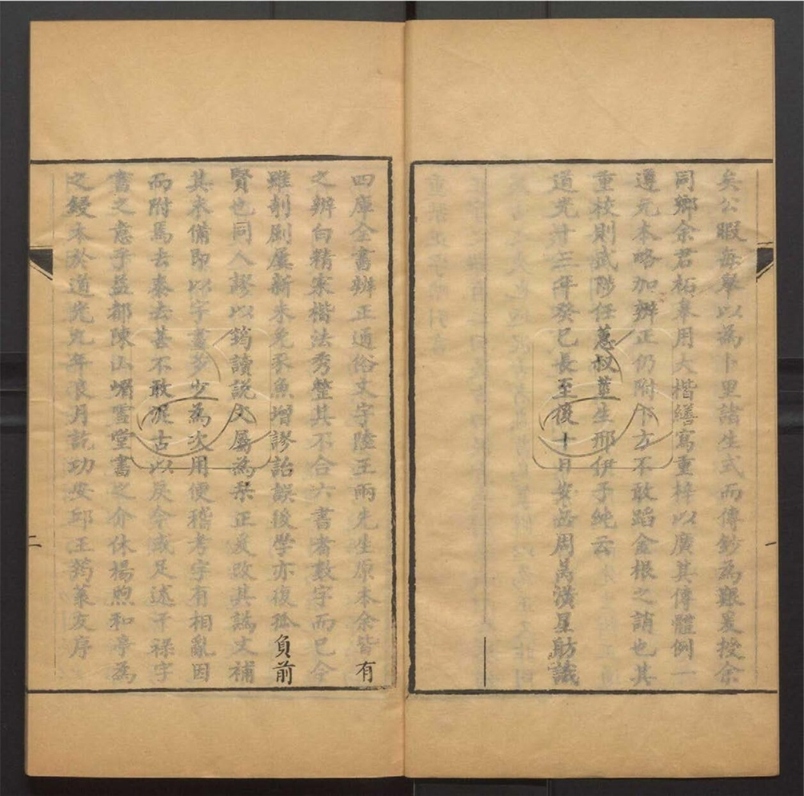 矣公暇每舉以為卜里諸生式而傳鈔為艱爰授余
同鄉余君柘皋用大楷繕寫重梓以廣其傳體例一
遵元本略加辨正仍附下方不敢蹈金根之誚也其
重校則武陟任蕙叔菫生邢伊子純云
道光廿三年癸巳長至後十日安岳周萬潢星舫識
一
四庫全書辨正通俗文字陸王兩先生原本余皆有
之辨白精案楷法秀整其不合六書者數字而已今
雖剞劂屢新未免豕魚增謬詒誤後學亦復孤負前
賢也同人謬以筠讀說文屬為栞正爰改其譌文補
其未備即以字畫多少為次用便稽考字有相亂因
而附焉去泰去甚不敢泥古以戾今咸足述干祿字
書之意乎益都陳山嵋雪堂書之介休楊煦和亭為
之鋟本於道光九年浪月訖功安邱王筠菉友序
二